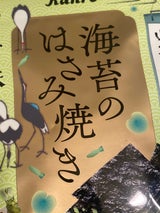 海苔の
はさみ焼き